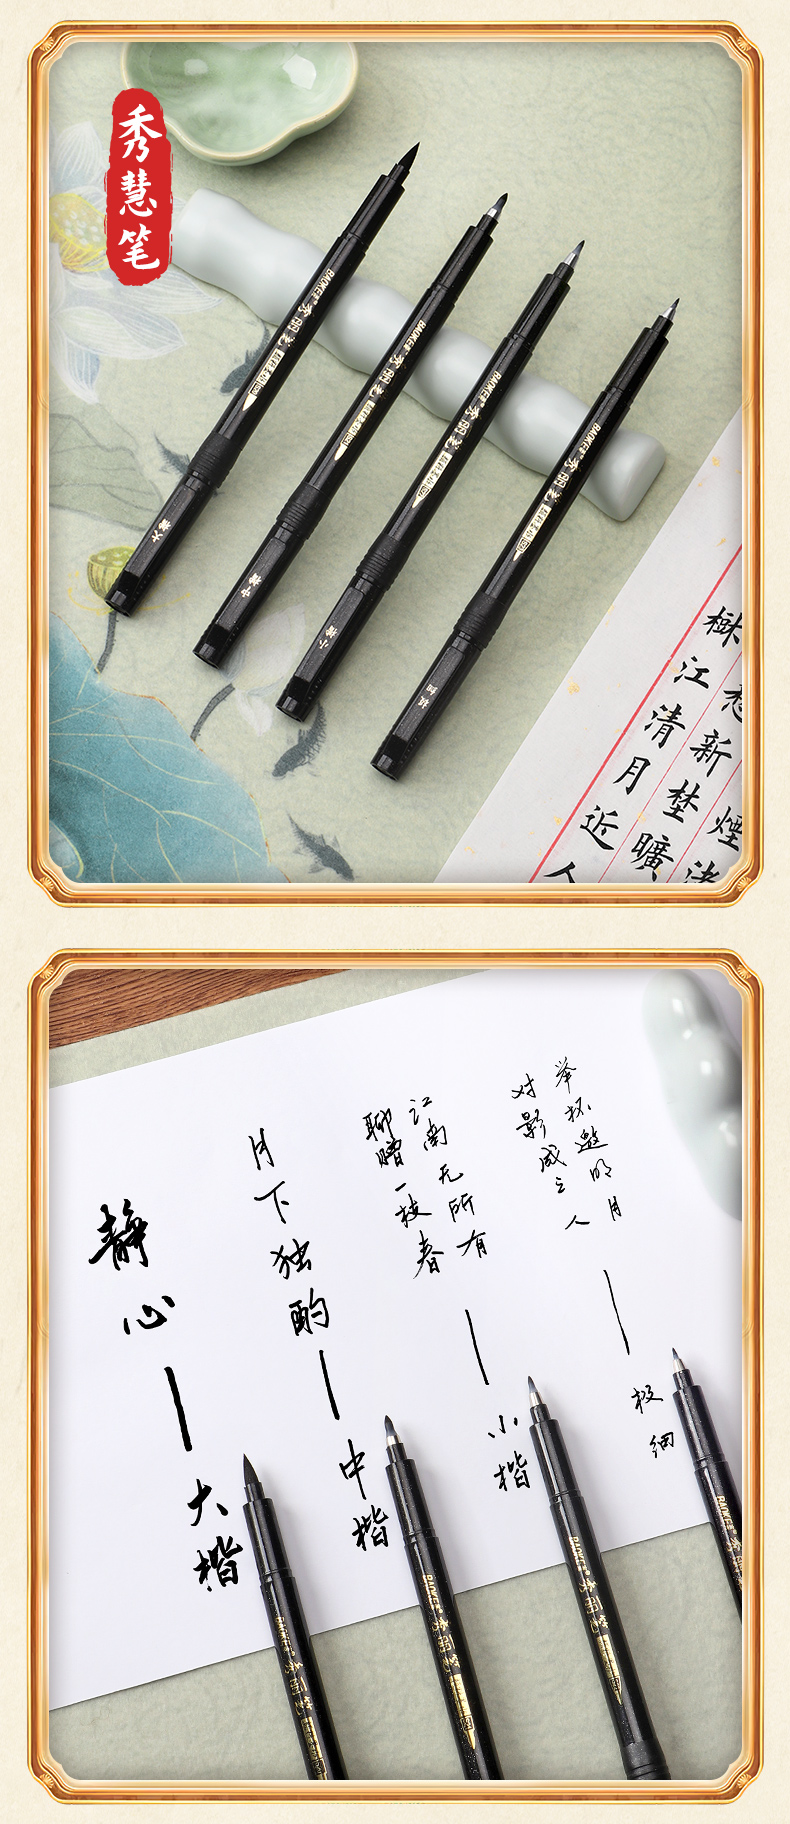 秀慧笔
BAOKE
BAOKE
BAOKE
BAOKE
大楷
中楷
小楷
极细
楸江清月近人
想新埜曠
煙渚
静心—大楷
月下独酌—中楷
江南无所有
聊赠一枝春
—小楷
举杯邀明月
对影成三人
—极细
BAOKE
BAOKE
BAOKE
BAOKE